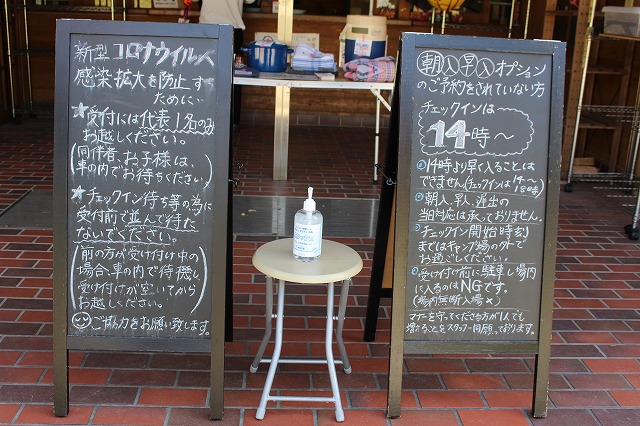 新型コロナウイルス
感染拡大を防止す
ために
★受付には代表1名のみ
お越しください。
(同伴者、お子様は、
車の中でお待ちください)
★チェックイン待ち等の為に
受付前で並んで待た
ないでください。
(前の方が受け付け中の
場合、車の内で待機し、
受け付けが空いてから
お越しください。)
ご協力をお願い致します。
朝入早入オプション
のご予約をされていない方
チェックインは
14時～
①14時より早く入ることは
できません(チェックインは14～18時)
②朝入、早入、遅出の
当日対応は承っておりません。
③チェックイン開始時刻
まではキャンプ場の外で
お過ごしください。
④受け付け前に駐車し場内
に入るのはNGです。
(場内無断入場×)
マナーを守ってくださる方が1人でも
増えることをスタッフ一同願っております。